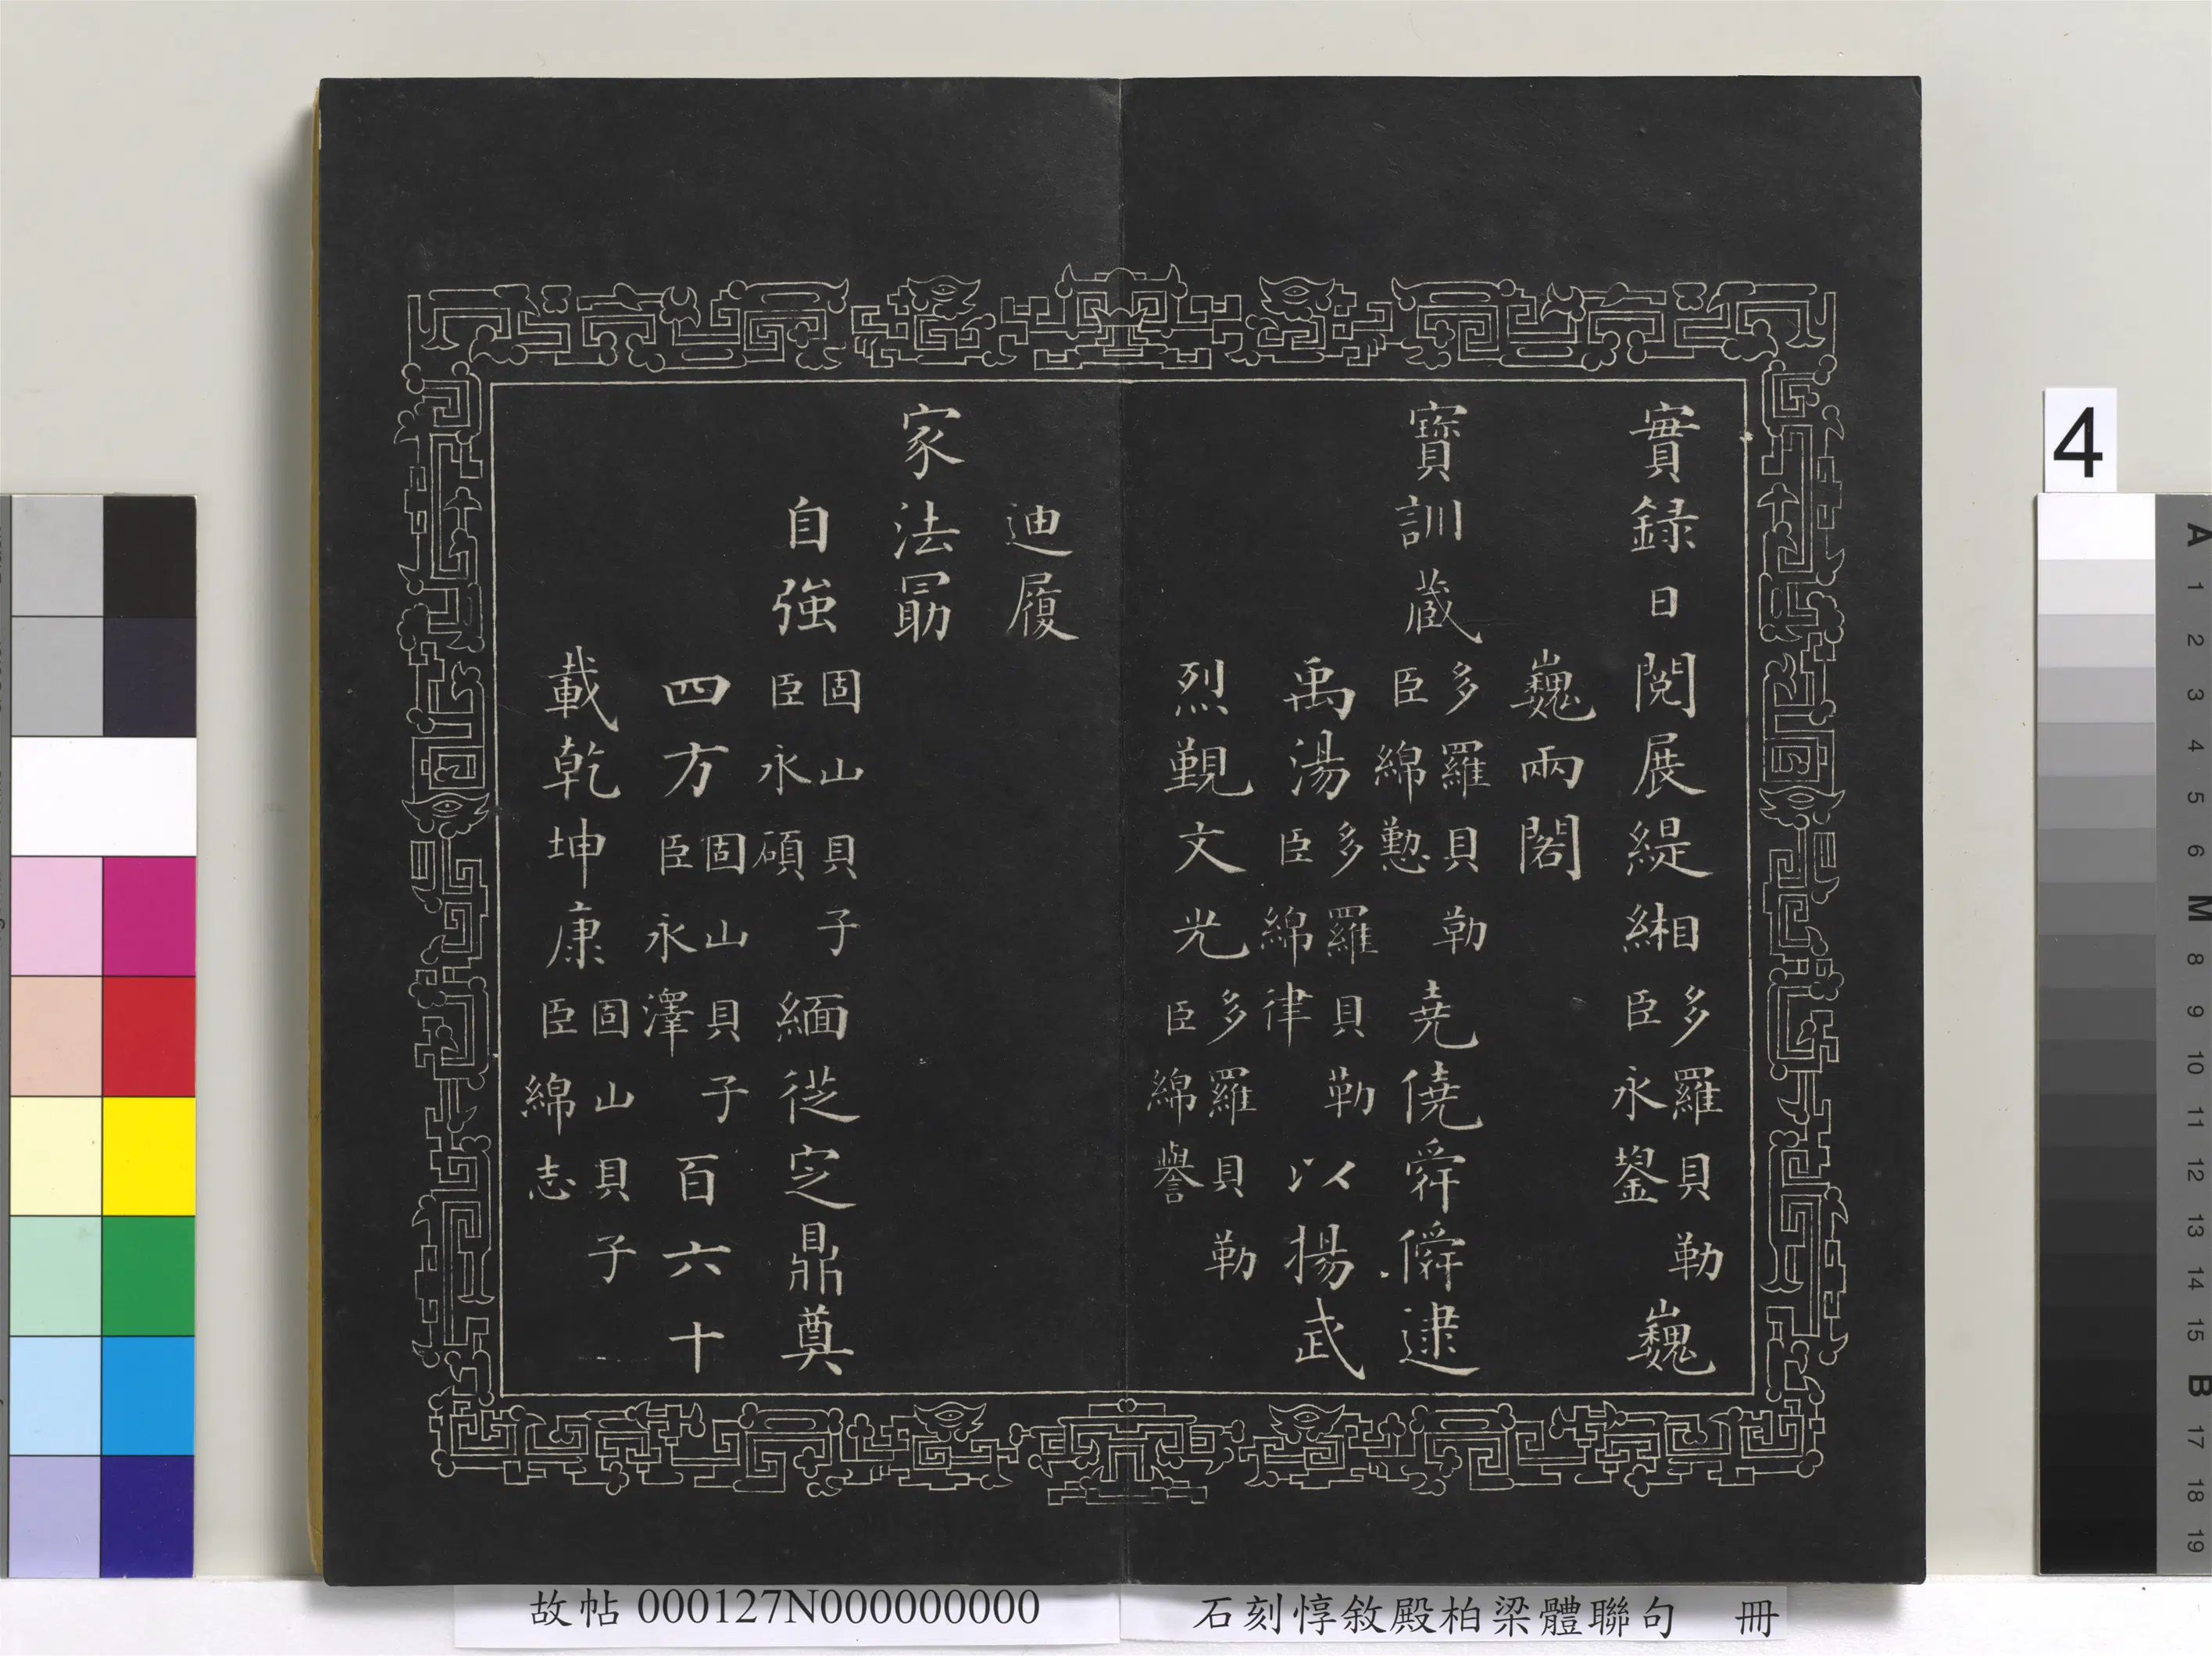 實録日閱展緹緗多羅貝勒臣永鋆巍
巍兩閣
寶訓蔵多羅貝勒臣綿懃堯僥舜僢逮
禹湯多羅貝勒臣綿律以揚武
烈覲文光多羅貝勒臣綿譽
迪履
家法勗
自強固山貝子臣永碩緬從定鼎奠
四方固山貝子臣永澤百六十
載乾坤康固山貝子臣綿志
故帖 000127N000000000
石刻惇敘殿柏梁體聯句 冊
4
A
1
2
3
4
5
6
M
8
9
10
11
12
13
14
15
B
17
18
19